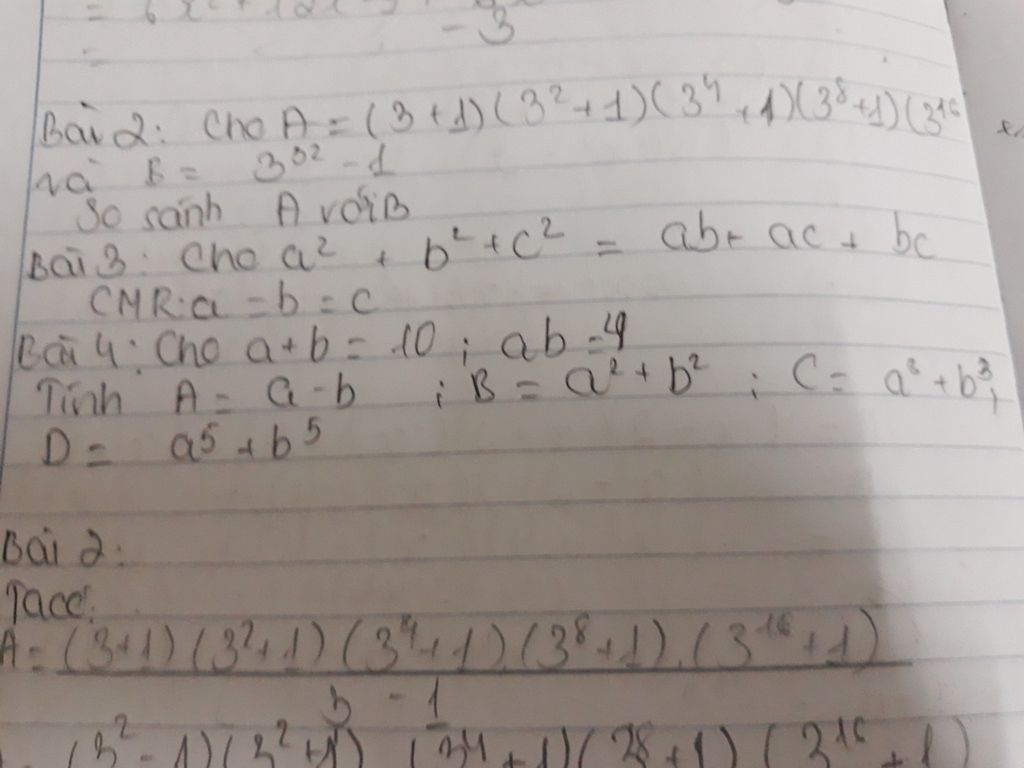 - 3
Bài 2: Cho A = (3+1)(3²+1)(3⁴+1)(3⁸+1)(3¹⁶
và B = 3³² - 1
So sánh A với B
Bài 3: Cho a² + b² + c² = ab + ac + bc
CMR: a = b = c
Bài 4: Cho a+b = 10 ; ab = 4
Tính A = a - b ; B = a² + b² ; C = a³ + b³ ;
D = a⁵ + b⁵
Bài 2:
Ta có:
A = (3+1)(3²+1)(3⁴+1).(3⁸+1).(3¹⁶+1)
3 - 1
(3²-1)(3²+1)(3⁴+1)(3⁸+1)(3¹⁶+1)